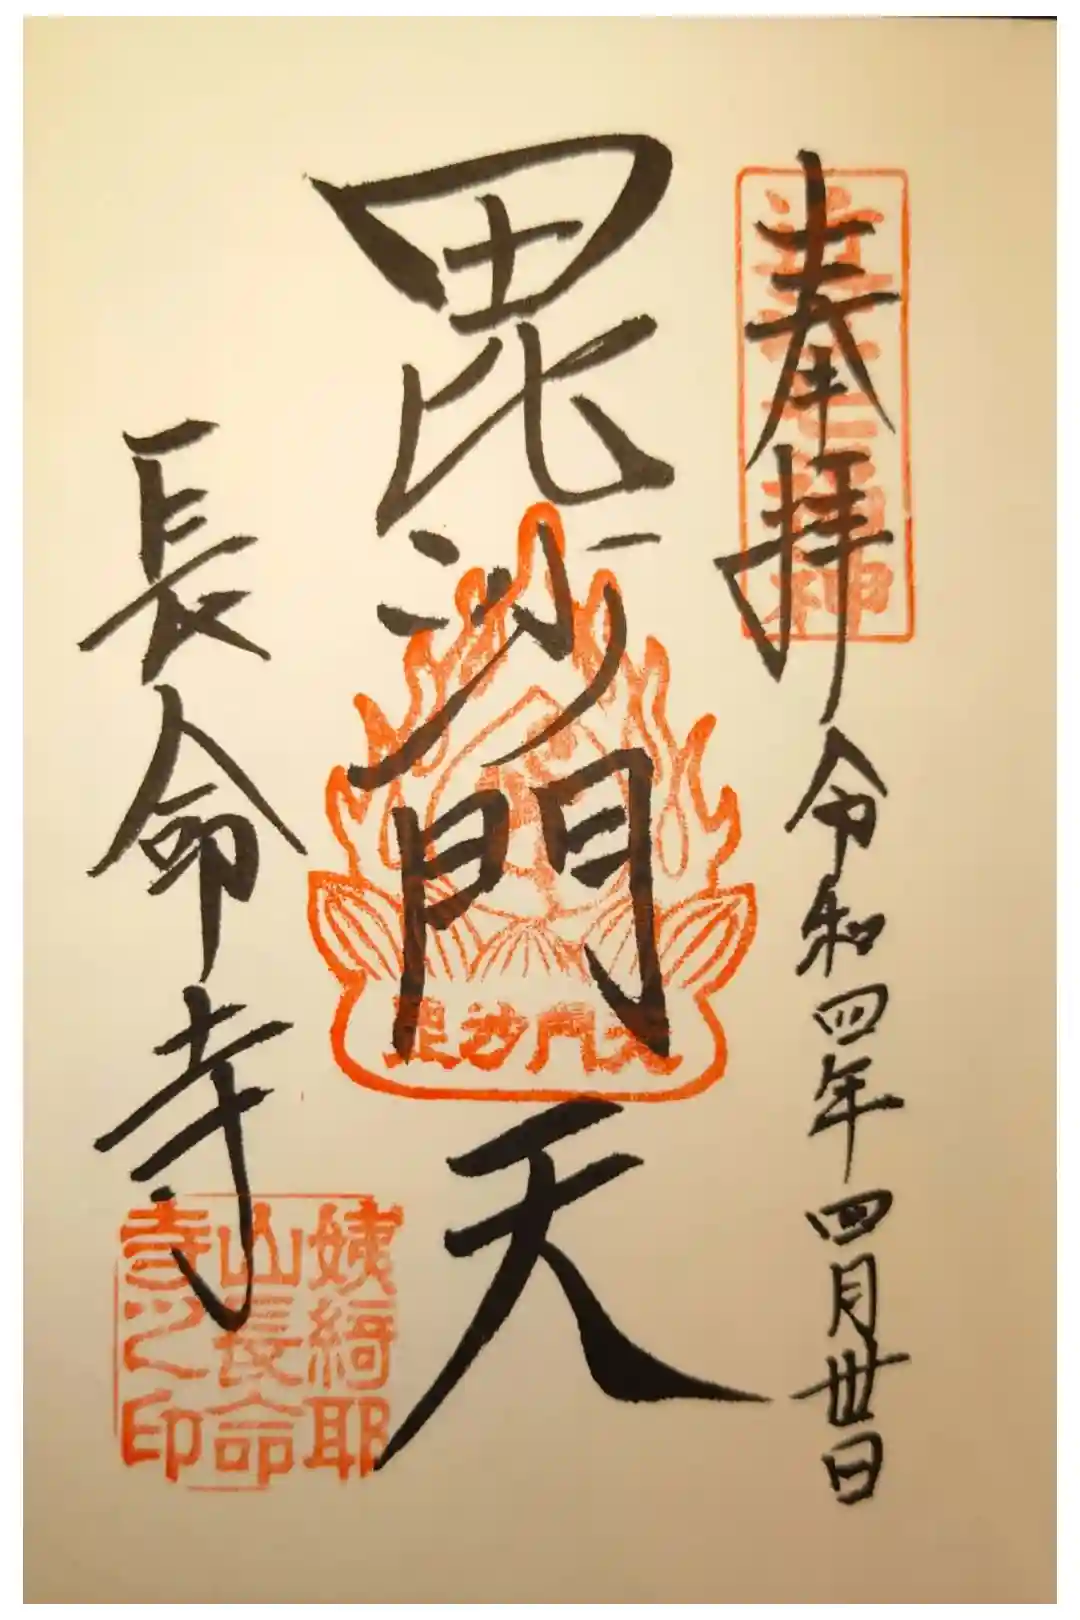 奉拝 令和四年四月丗日
毘沙門天
毘沙門天
長命寺
姨綺耶
山長命
寺之印